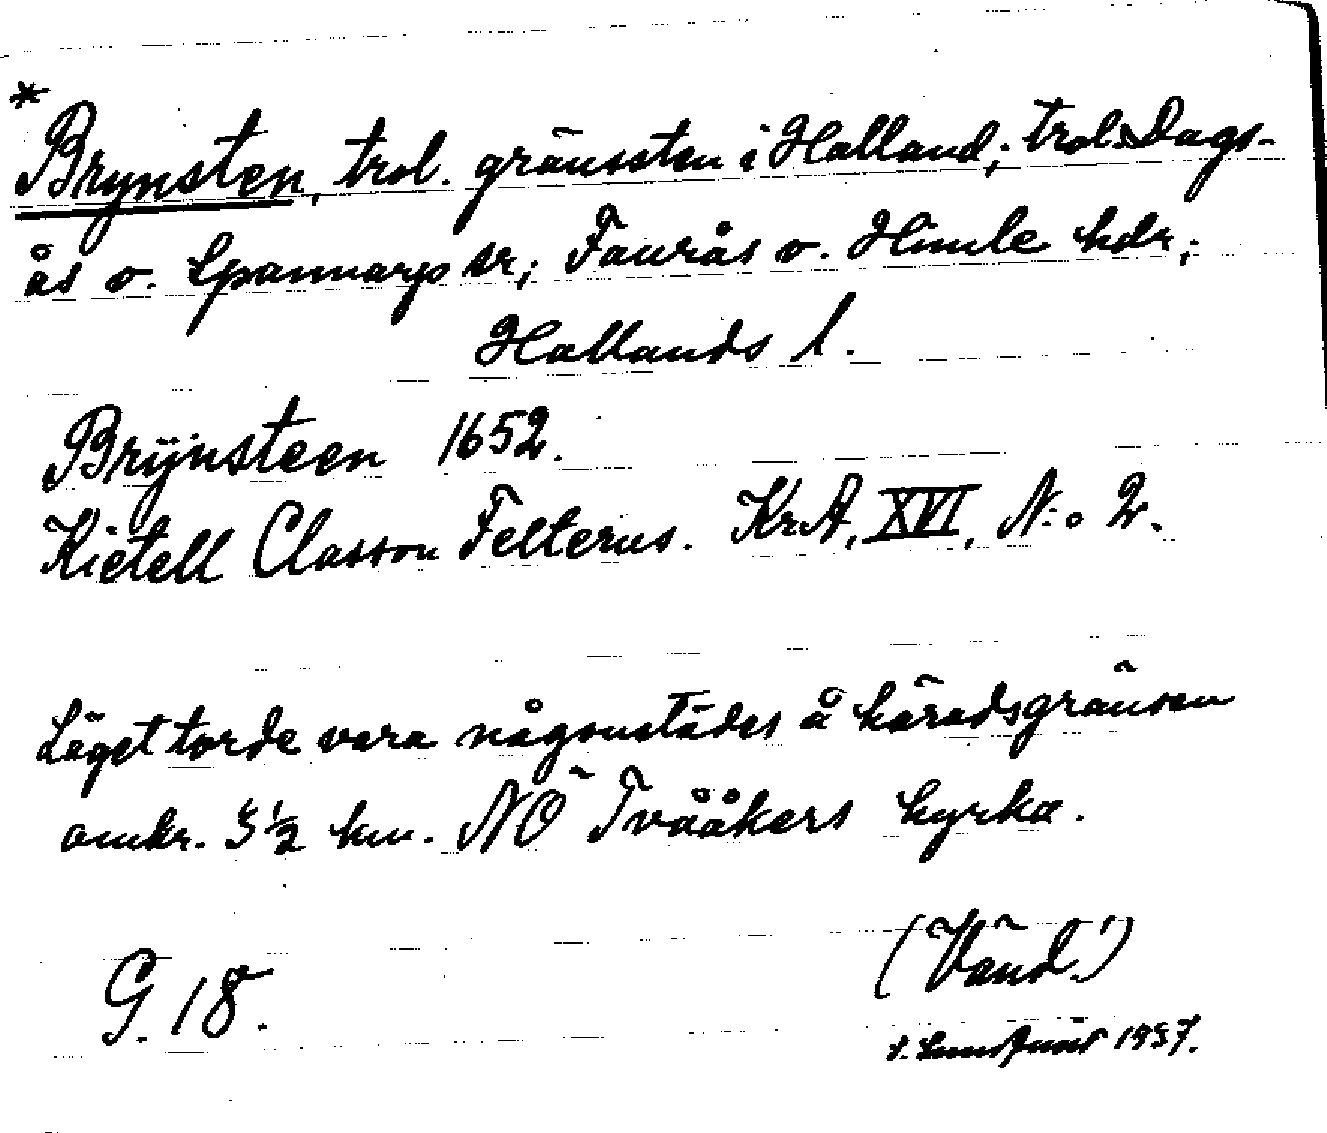 * Brynsten, trol. gränssten i Halland; trol. Dags-
ås o. Spannarp sr; Faurås o. Himle hdr;
Hallands l.
Brÿnsteen 1652.
Kietell Classon Felterus. KrA, XVI, N:o 2.
Läget torde vara någonstädes å häradsgränsen
omkr. 5 ½ km. NÖ Tvååkers kyrka.
(Vänd!)
G. 18.
1937.